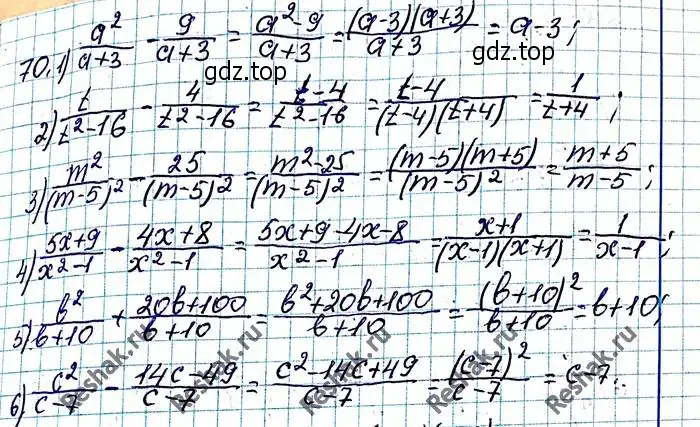 70.1) a²/(a+3) - 9/(a+3) = (a²-9)/(a+3) = (a-3)(a+3)/(a+3) = a-3;
gdz.top
gdz.top
2) t/(t²-16) - 4/(t²-16) = (t-4)/(t²-16) = (t-4)/((t-4)(t+4)) = 1/(t+4);
3) m²/(m-5)² - 25/(m-5)² = (m²-25)/(m-5)² = (m-5)(m+5)/(m-5)² = (m+5)/(m-5);
4) (5x+9)/(x²-1) - (4x+8)/(x²-1) = (5x+9-4x-8)/(x²-1) = (x+1)/((x-1)(x+1)) = 1/(x-1);
5) b²/(b+10) + (20b+100)/(b+10) = (b²+20b+100)/(b+10) = (b+10)²/(b+10) = b+10;
6) c²/(c-7) - (14c-49)/(c-7) = (c²-14c+49)/(c-7) = (c-7)²/(c-7) = c-7.
Reshak.ru
Reshak.ru
Reshak.ru
Reshak.ru
Reshak.ru